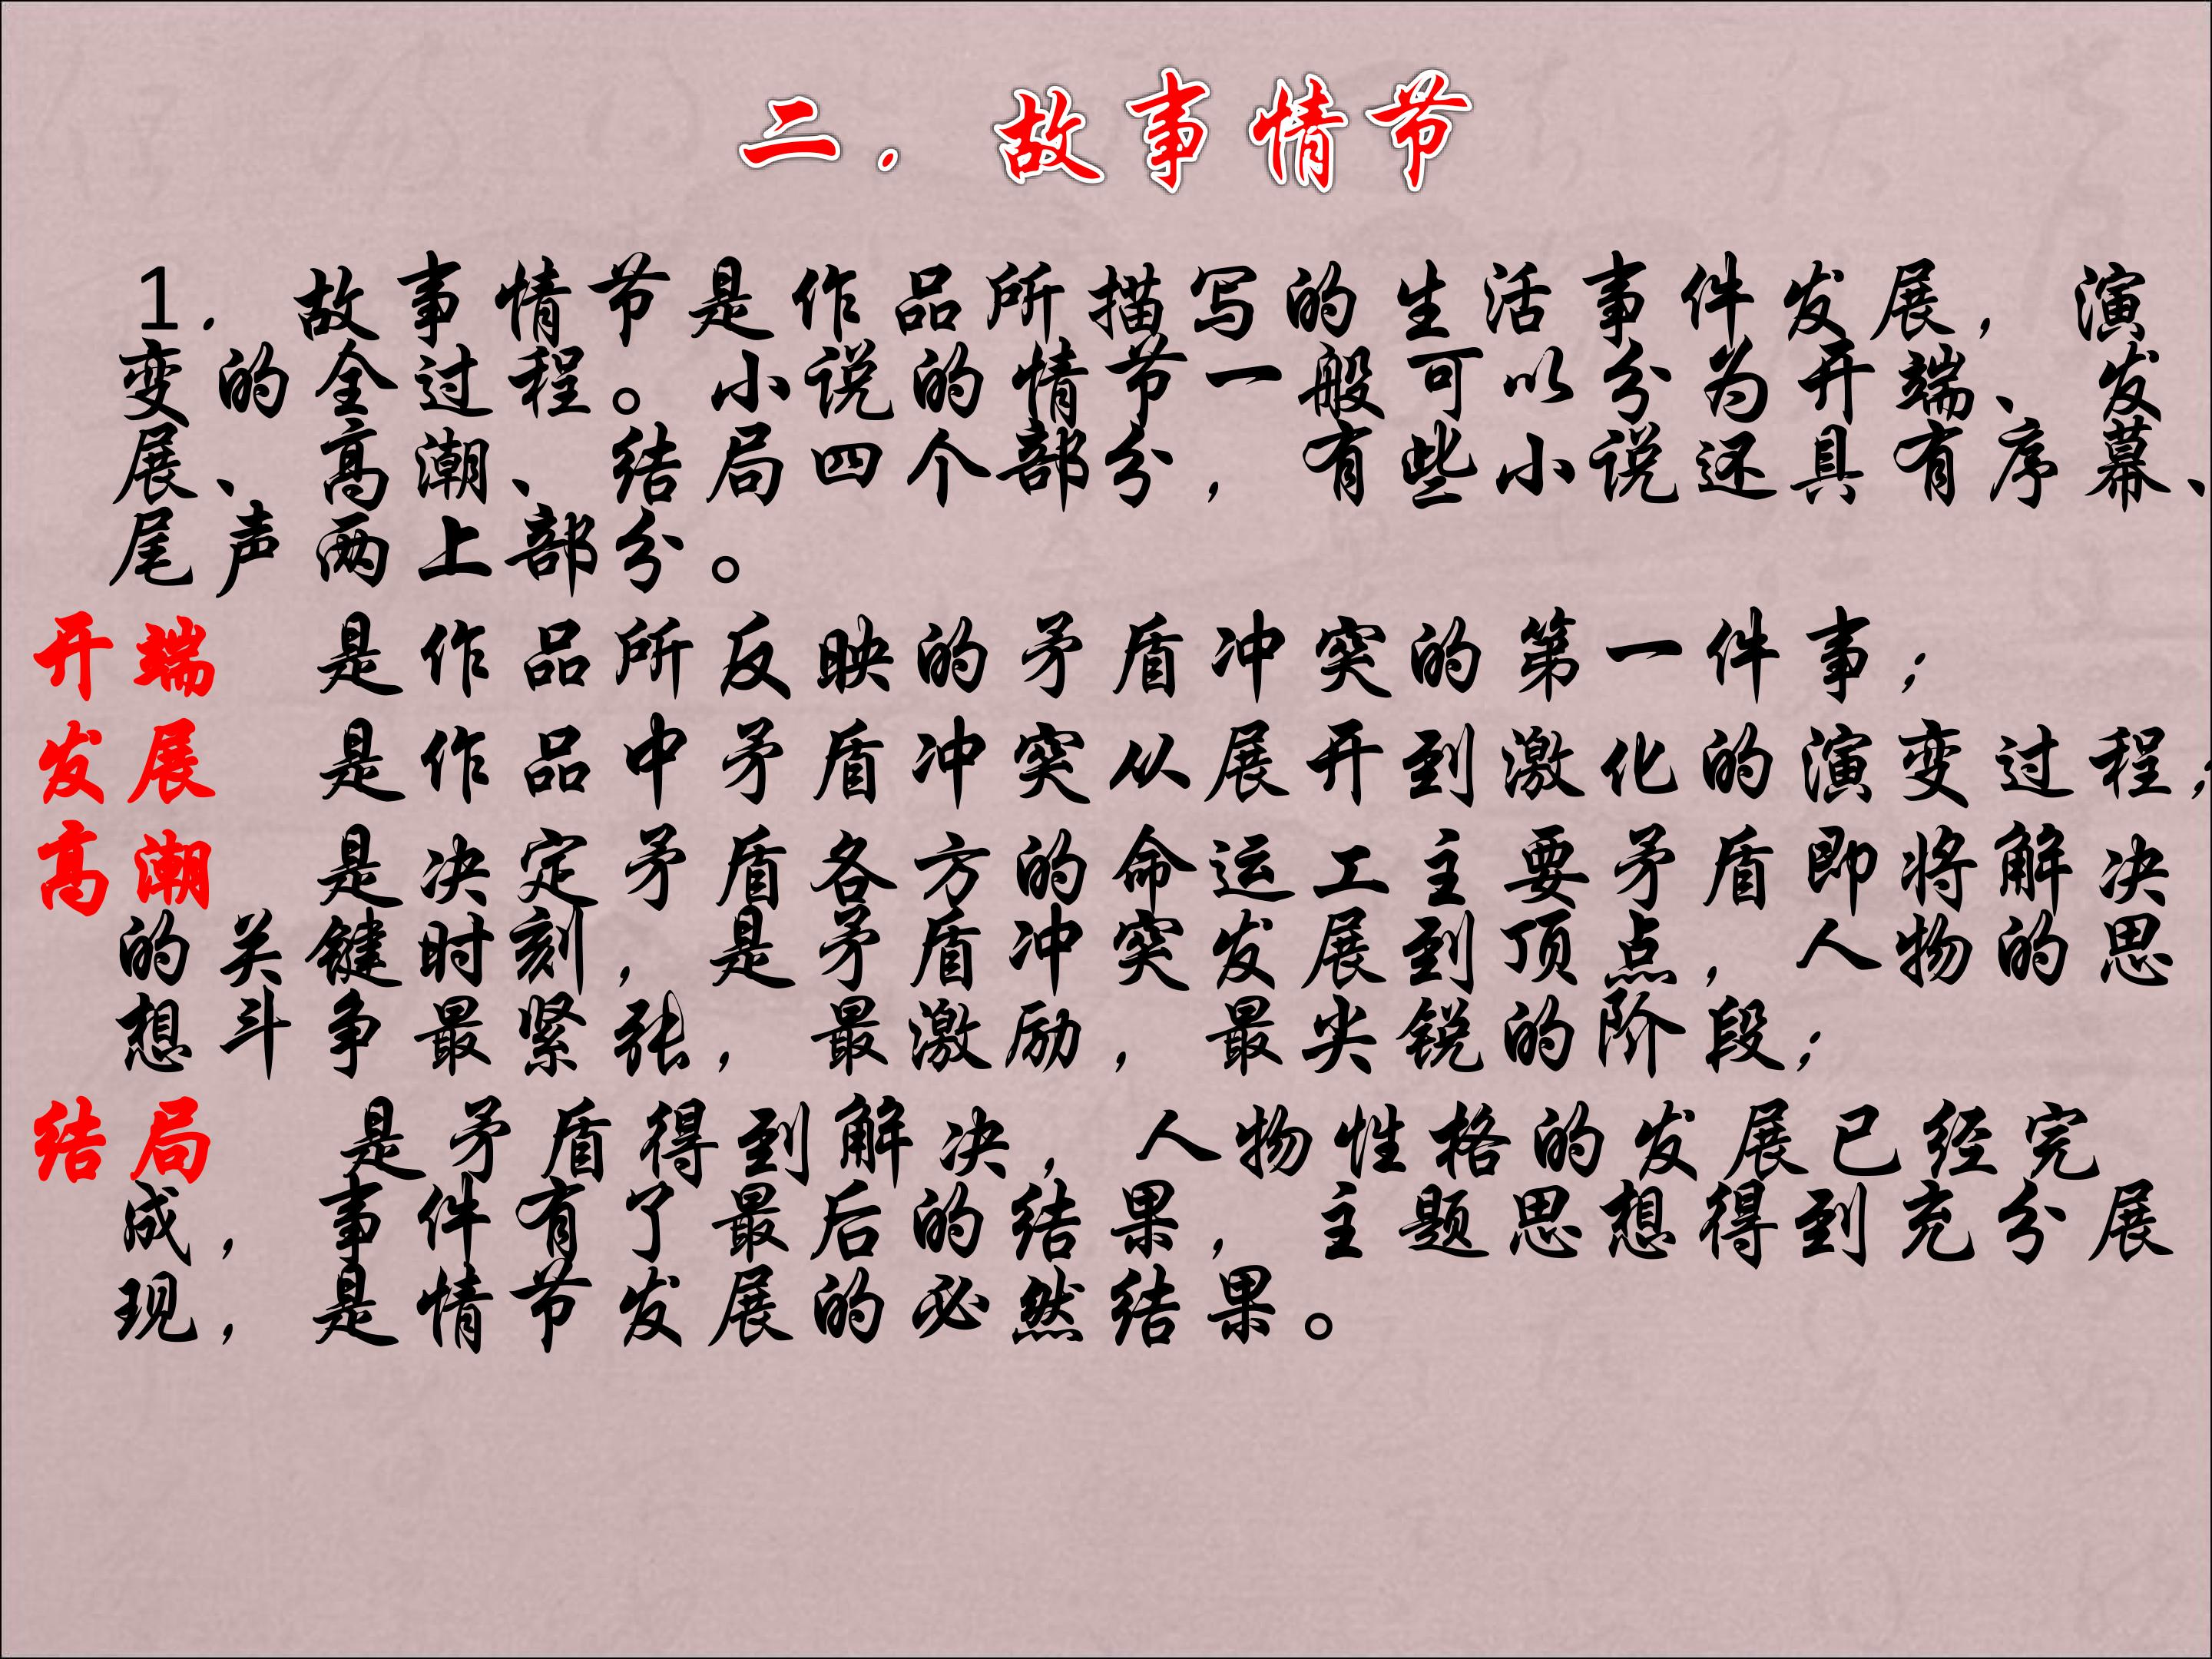 二．故事情节
1．故事情节是作品所描写的生活事件发展，演
变的全过程。小说的情节一般可以分为开端、发
展、高潮、结局四个部分，有些小说还具有序幕、
尾声两上部分。
开端 是作品所反映的矛盾冲突的第一件事；
发展 是作品中矛盾冲突从展开到激化的演变过程；
高潮 是决定矛盾各方的命运工主要矛盾即将解决
的关键时刻，是矛盾冲突发展到顶点，人物的思
想斗争最紧张，最激励，最尖锐的阶段；
结局 是矛盾得到解决，人物性格的发展已经完
成，事件有了最后的结果，主题思想得到充分展
现，是情节发展的必然结果。